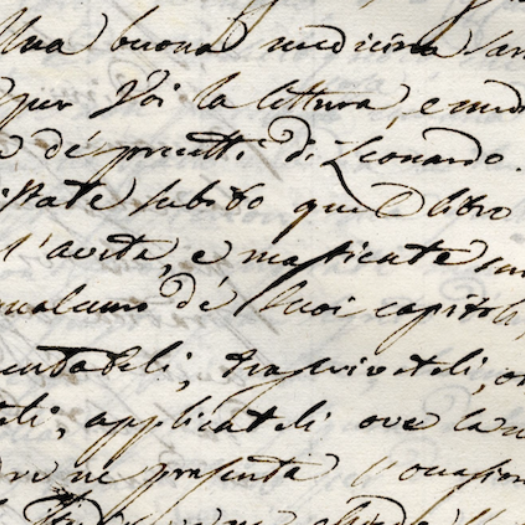 Una buona medicina sar
per Voi la lettura, e med
de' precetti di Leonardo.
state subito quel libro
l'averta, e masticate
qualcuno de' suoi capitoli,
trascriveteli, o
applicateli ove la
ne presenta l'occasion